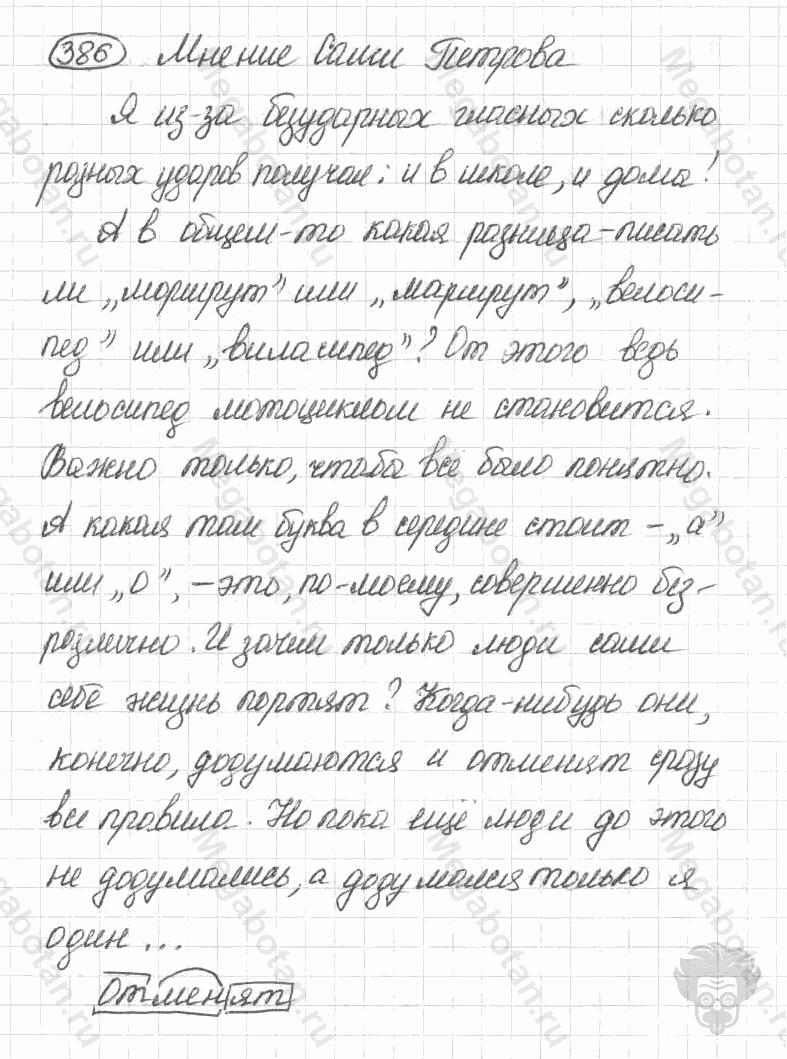 386 Мнение Саши Петрова
Я из-за безударных гласных сколько
разных ударов получал: и в школе, и дома!
А в общем-то какая разница - писать
ли „моршрут” или „маршрут”, „велоси-
пед” или „виласипед”? От этого ведь
велосипед мотоциклом не становится.
Важно только, чтобы все было понятно.
А какая там буква в середине стоит - „а”
или „о”, - это, по-моему, совершенно без-
различно. И зачем только люди сами
себе жизнь портят? Когда-нибудь они,
конечно, додумаются и отменят сразу
все правила. Но пока ещё люди до этого
не додумались, а додумался только я
один...
Отменят
Megabotan.ru